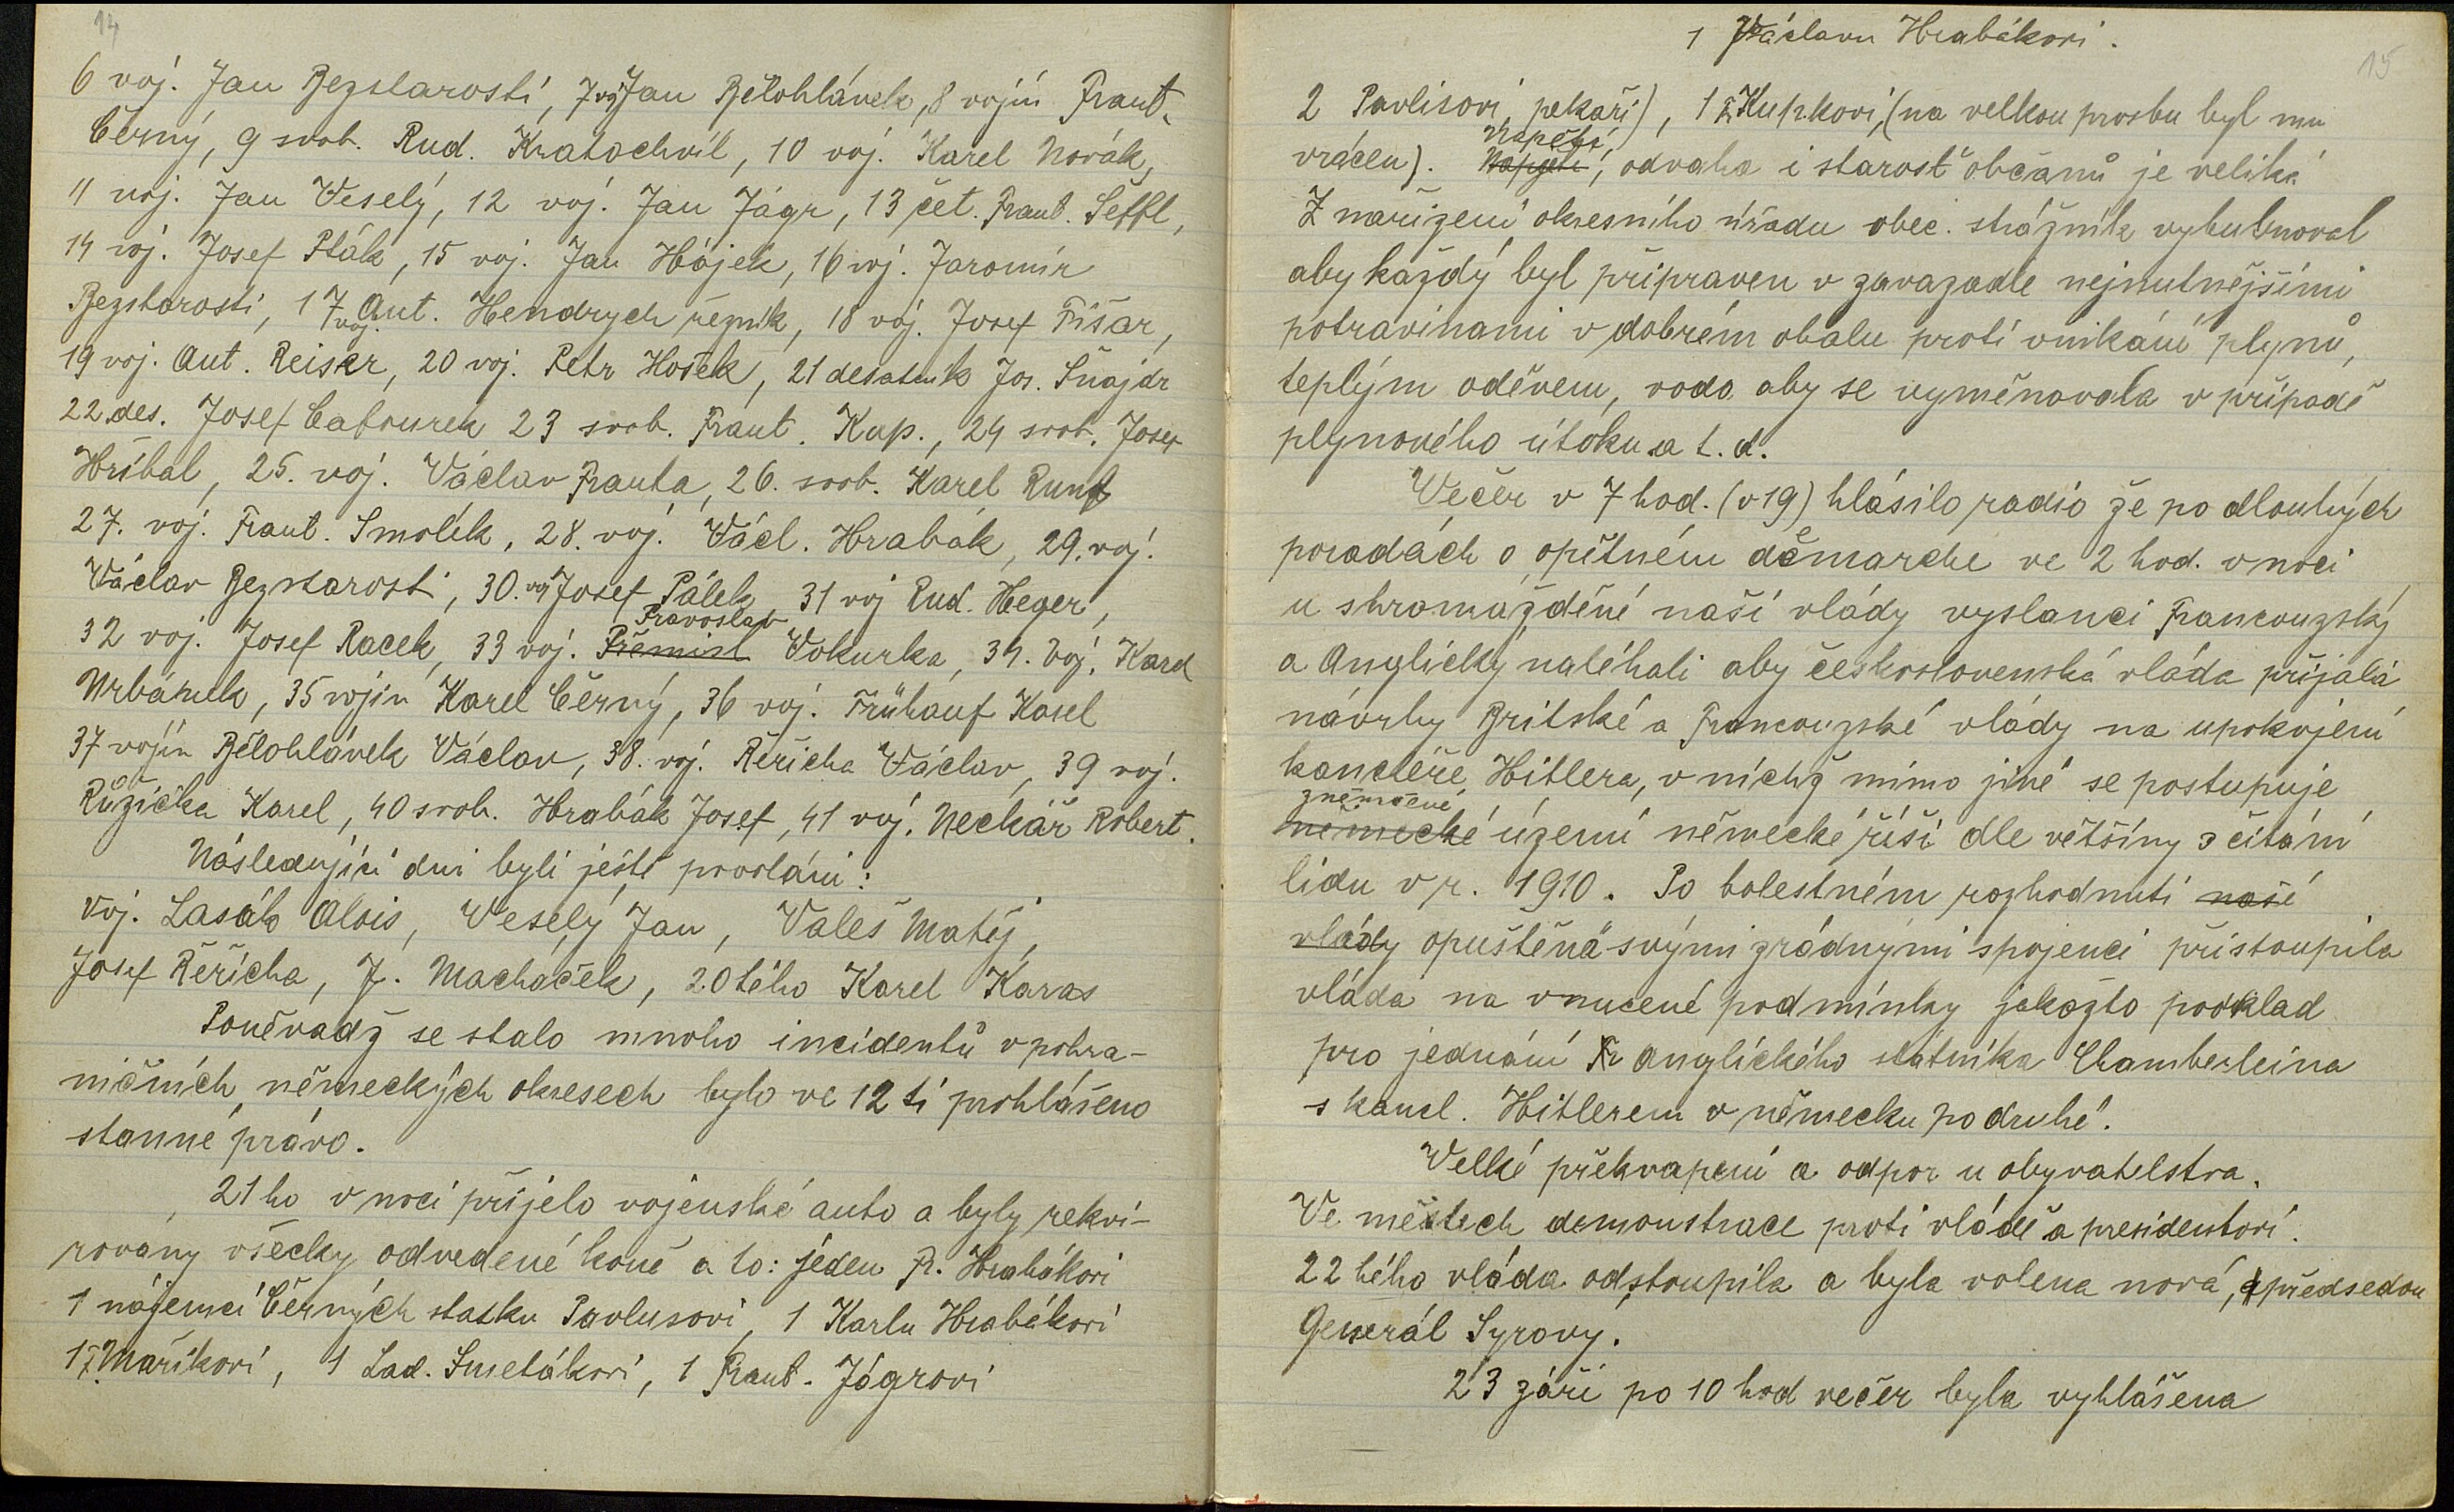 14
6 voj. Jan Bezstarosti, 7 voj Jan Bělohlávek, 8 vojín Frant.
Černý, 9 svob. Rud. Kratochvíl, 10 voj. Karel Novák,
11 voj. Jan Veselý, 12 voj. Jan Jágr, 13 čet. Frant. Šeffl,
14 voj. Josef Pták, 15 voj. Jan Hájek, 16 voj. Jaromír
Bezstarosti, 17 voj. Ant. Hendrych řezník, 18 voj. Josef Fišar,
19 voj. Ant. Reiser, 20 voj. Petr Hošek, 21 desatník Jos. Šnajdr
22 des. Josef Cabourek 23 svob. Frant. Kup., 24 svob. Josef
Hříbal, 25. voj. Václav Franta, 26. svob. Karel Runt
27. voj. Frant. Smolík, 28. voj. Václ. Hrabák, 29. voj.
Václav Bezstarosti, 30. voj Josef Pálek, 31 voj Rud. Heger,
32 voj. Josef Racek, 33 voj. Přemisl Pravoslav Vokurka, 34. Voj. Karel
Urbánek, 35 vojín Karel Černý, 36 voj. Frühauf Karel
37 vojín Bělohlávek Václav, 38. voj. Řeřicha Václav, 39 voj.
Růžička Karel, 40 svob. Hrabák Josef, 41 voj. Neckář Robert.
Následující dni byli ještě povoláni:
Voj. Lasák Alois, Veselý Jan, Valeš Matěj,
Josef Řeřicha, J. Macháček, 20tého Karel Karas
Poněvadž se stalo mnoho incidentů v pohra-
ničních německých okresech bylo ve 12 ti prohlášeno
stanné právo.
21ho v noci přijelo vojenské auto a byly rekvi-
rovány všecky odvedené koně a to: jeden Fr. Hrabákovi
1 nájemci Černých statku Pavlusovi, 1 Karlu Hrabákovi
1 Maříkovi, 1 Lad. Smetákovi, 1 Frant. Jágrovi
15
1 Václavu Hrabákovi.
2 Pavlisovi, pekaři), 1 Kupkovi, (na velkou prosbu byl mu
vrácen). Napjetí Napětí, odvaha i starost občanů je veliká
Z nařízení okresního úřadu obec. strážník vybubnoval
aby každý byl připraven v zavazadle nejnutnějšími
potravinami v dobrém obalu proti vnikání plynů,
teplým oděvem, voda aby se vyměnovala v případě
plynového útoku a t. d.
Večer v 7 hod. (v 19) hlásilo radio že po dlouhých
poradách o opětném démarche ve 2 hod. v noci
u shromážděné naší vlády vyslanci Francouzský
a Anglický naléhali aby československá vláda přijala
návrhy Britské a Francouzské vlády na upokojení
kancléře Hitlera, v nichž mimo jiné se postupuje
německé zněmčené území německé říši dle většiny sčítání
lidu v r. 1910. Po bolestném rozhodnutí naší
vlády opuštěná svými zrádnými spojenci přistoupila
vláda na vnucené podmínky jakožto podklad
pro jednání Anglického státníka Chamberleina
s kancl. Hitlerem v německu po druhé.
Velké překvapení a odpor u obyvatelstva.
Ve městech demonstrace proti vládě a presidentovi.
22 hého vláda odstoupila a byla volena nová, předsedou
Generál Syrový.
23 září po 10 hod večer byla vyhlášena